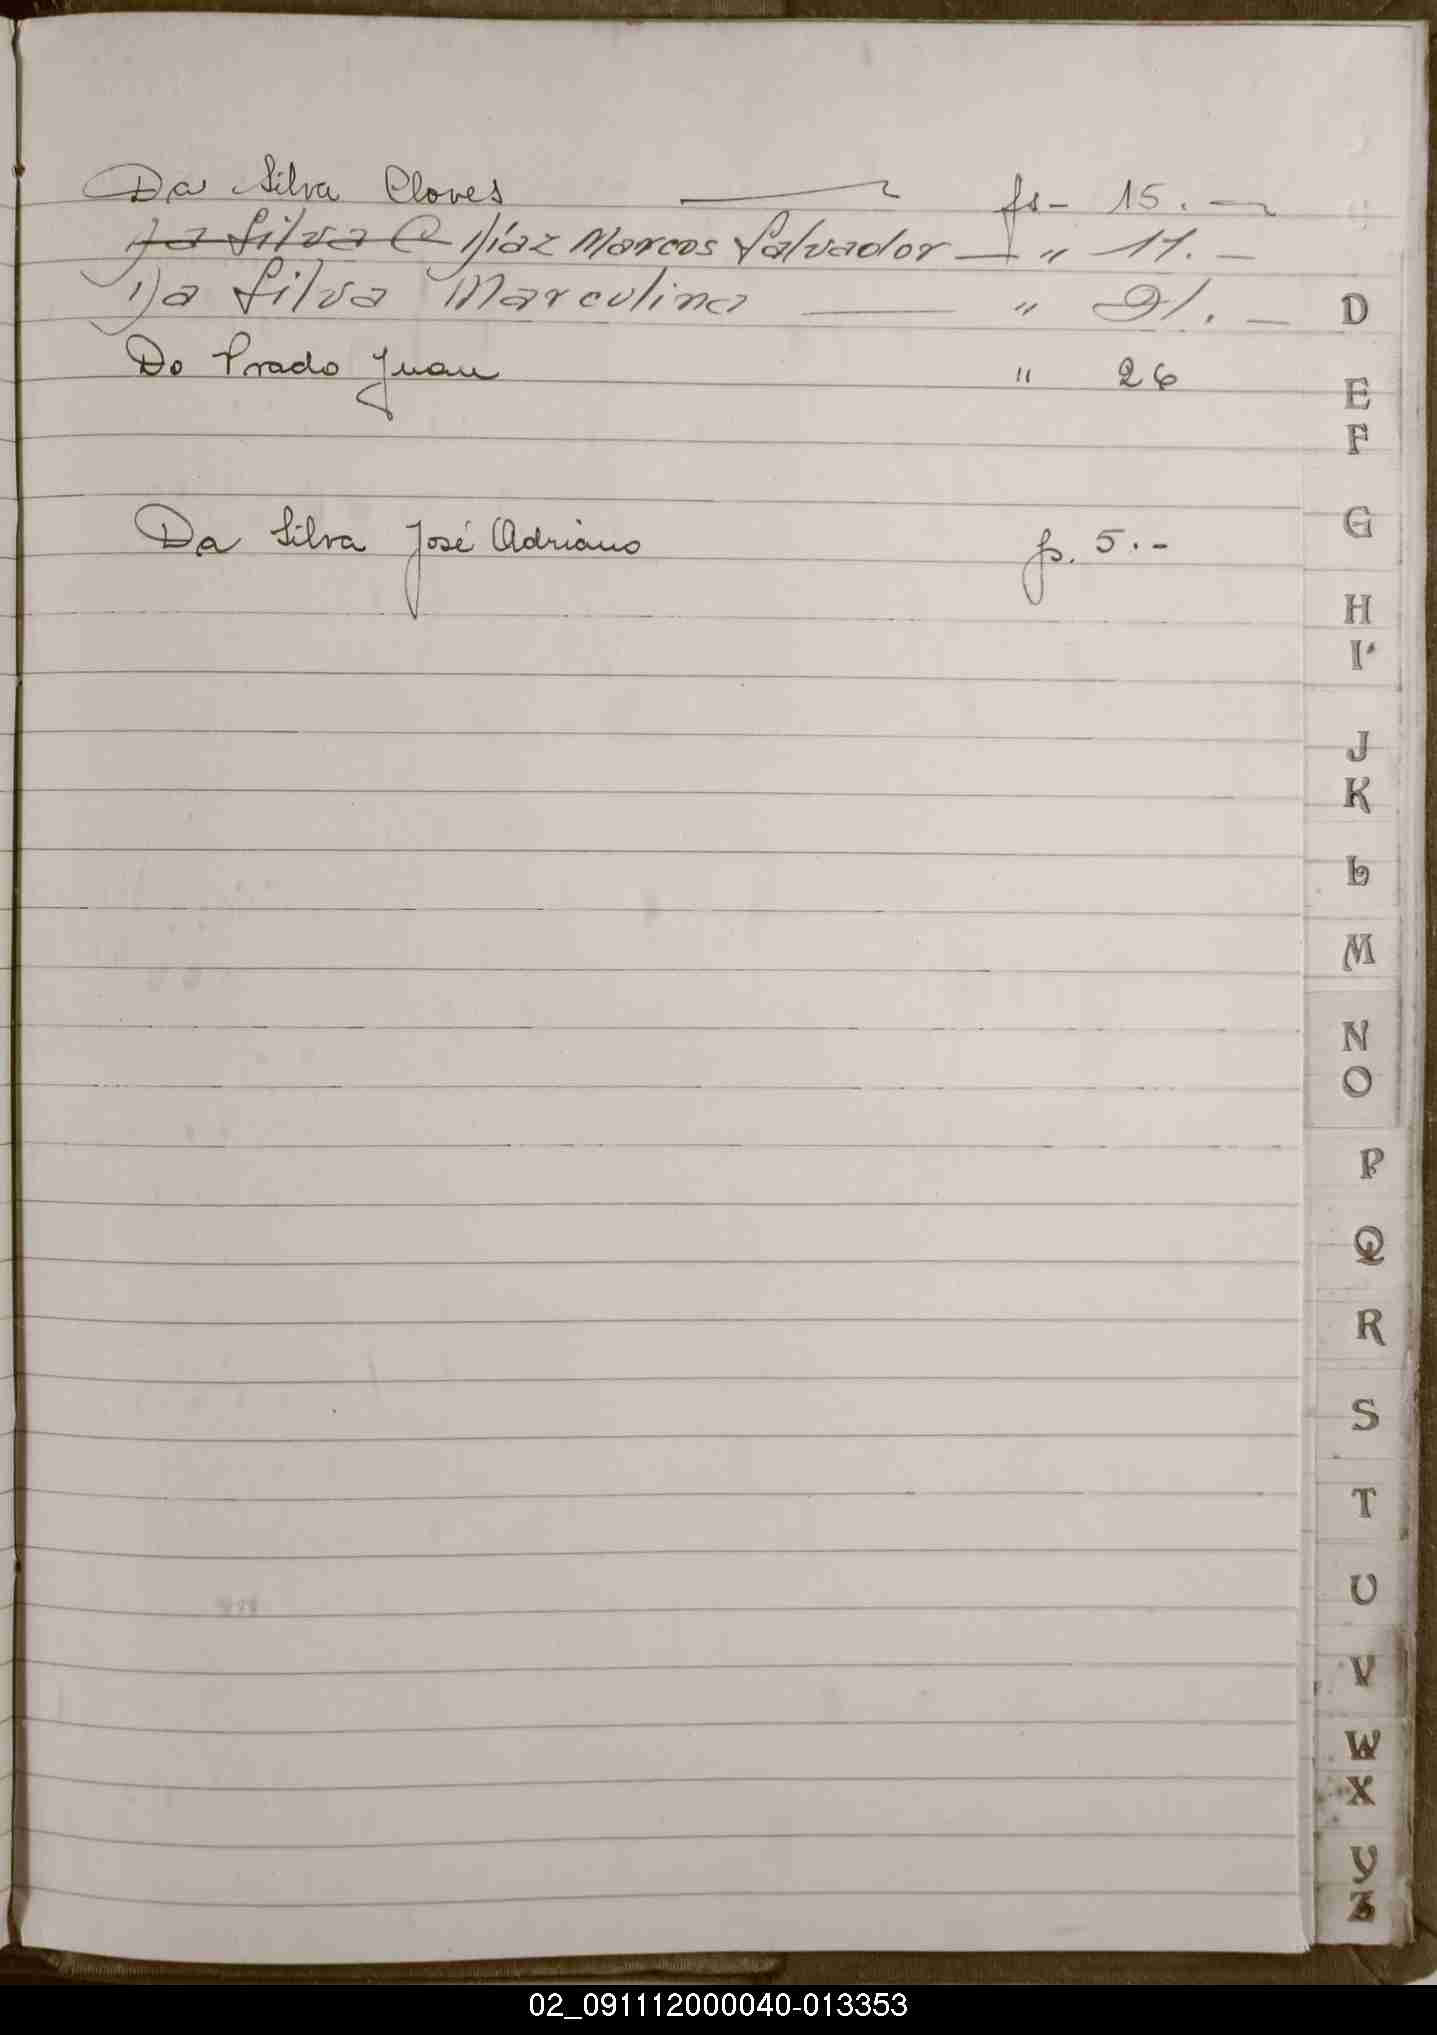 Da Silva Cloves — fs- 15. -
Da Silva C Díaz Marcos Salvador — " 11. -
Da Silva Marculina — " 21. -
Do Prado Juan " 26
Da Silva José Adriano fs. 5. -
D
E
F
G
H
I
J
K
L
M
N
O
P
Q
R
S
T
U
V
W
X
Y
Z
02_091112000040-013353